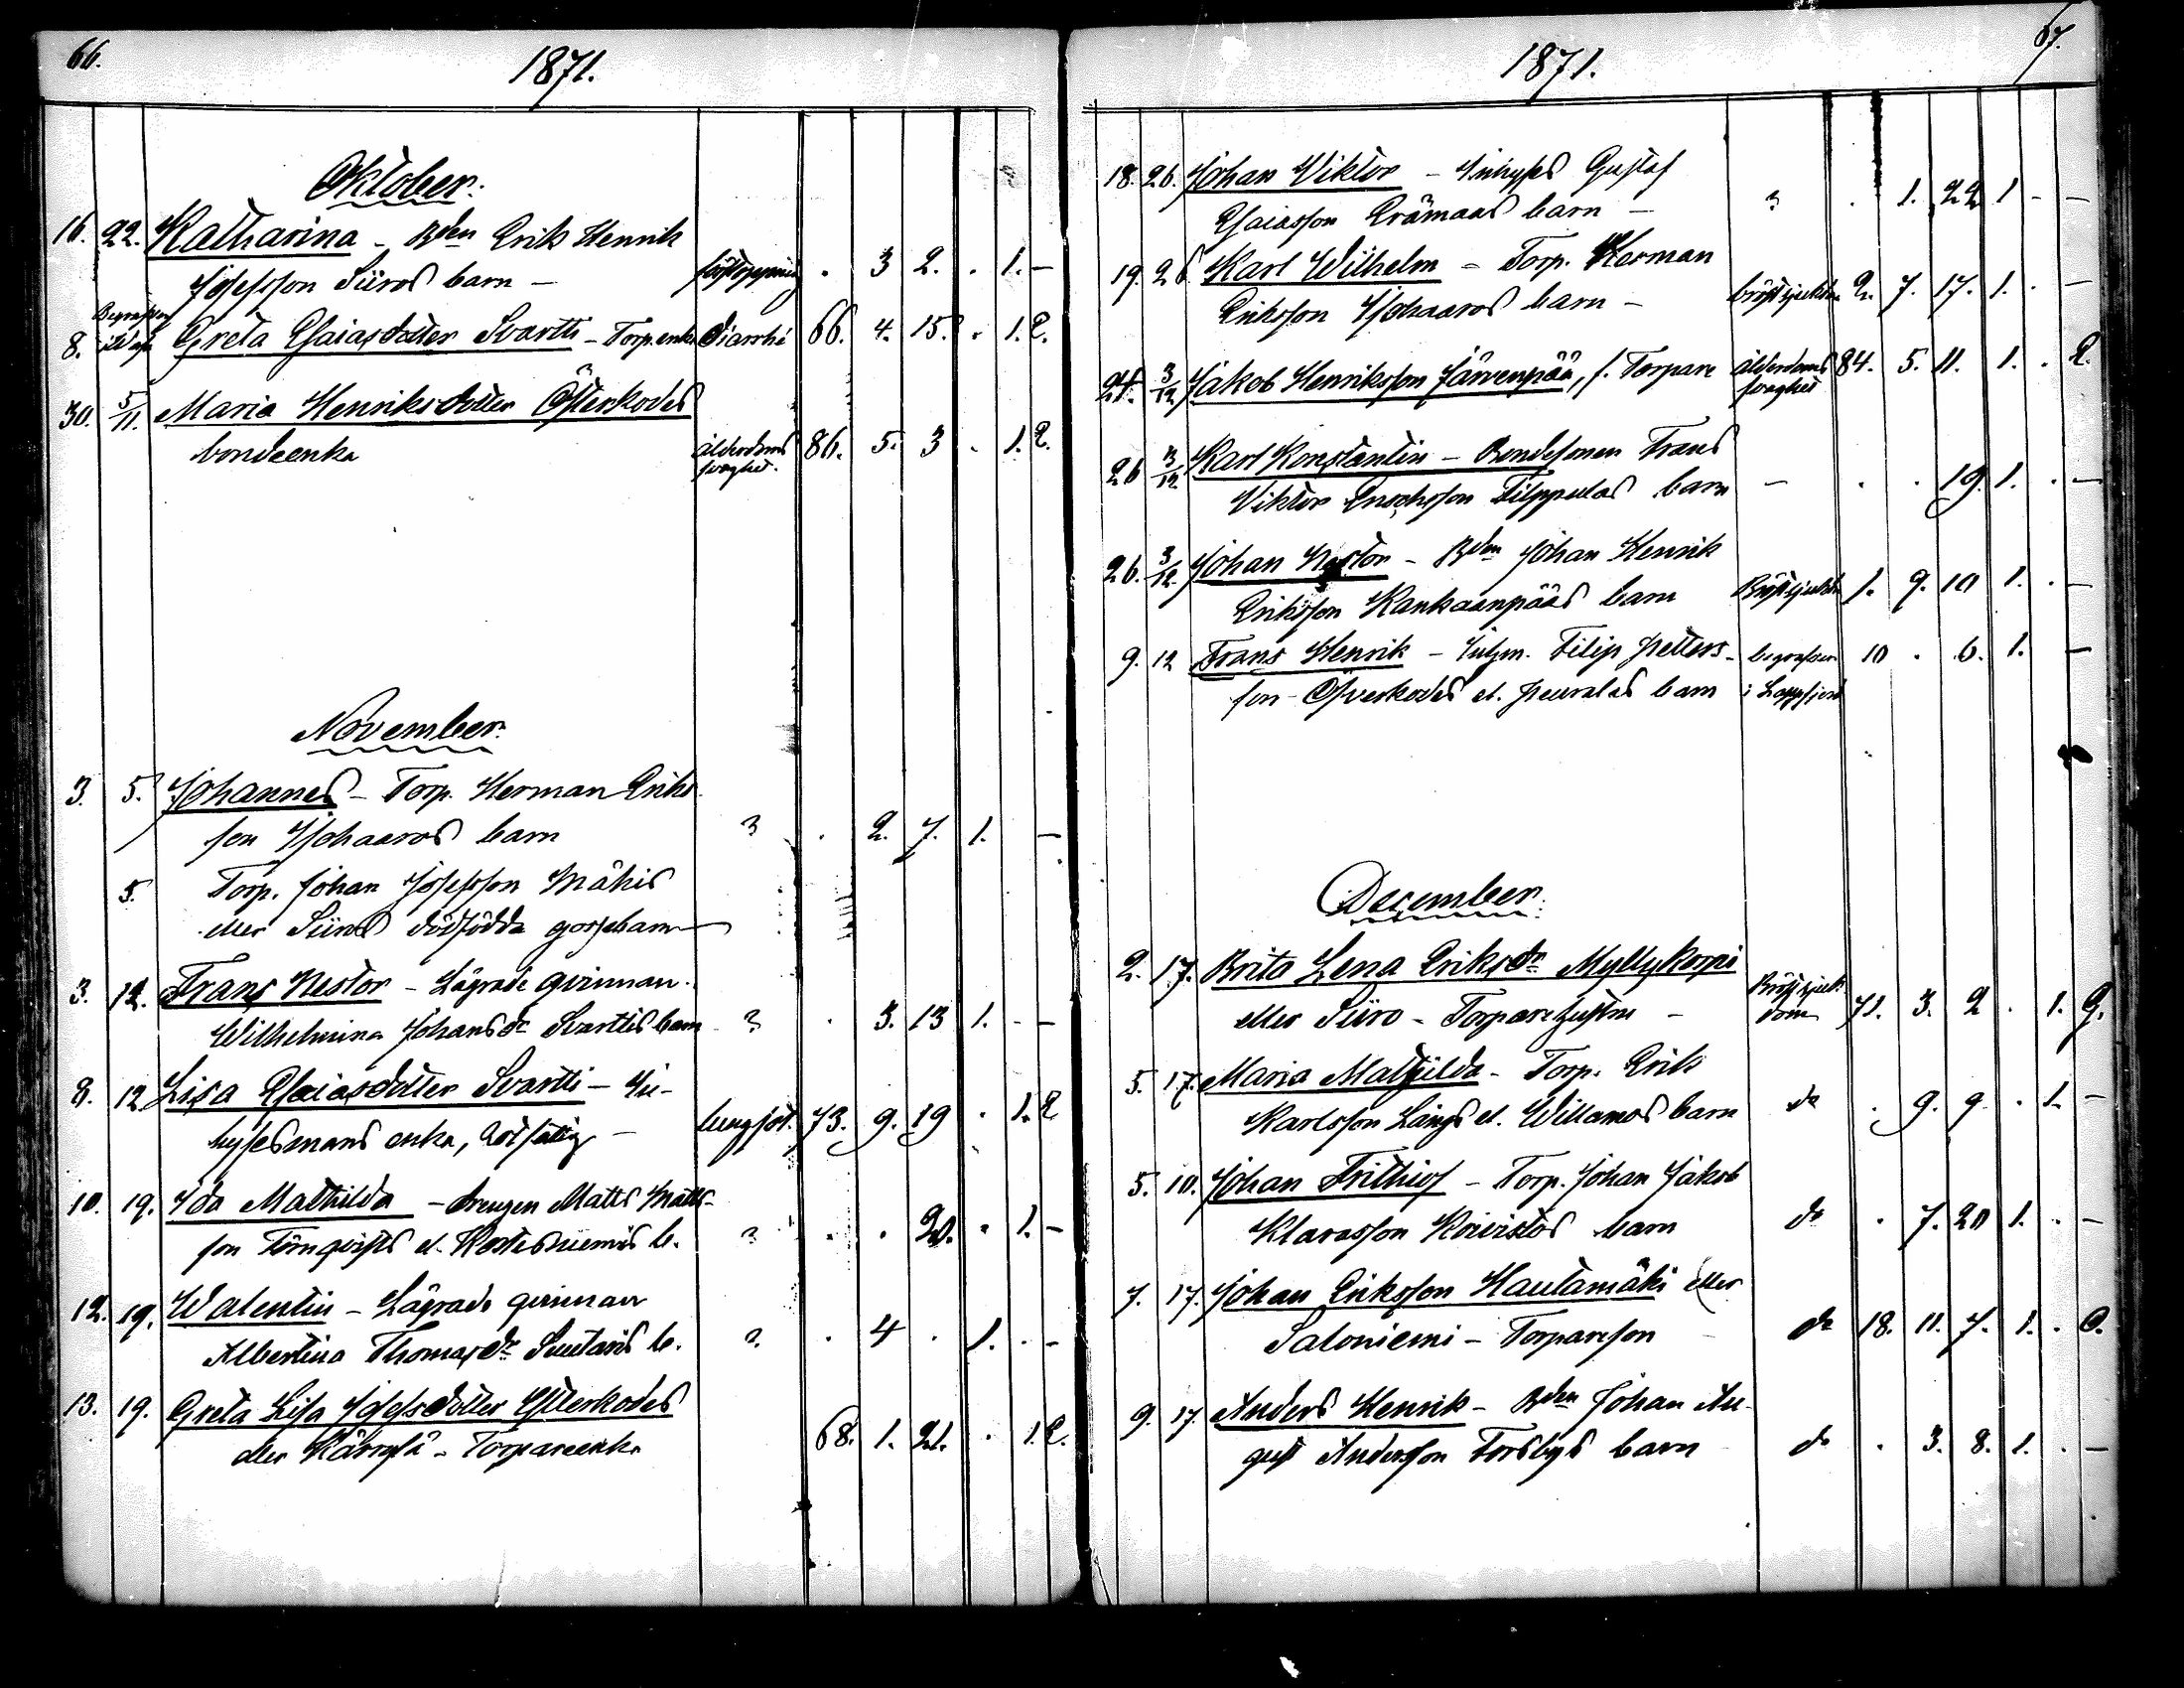 66.
1871.
Oktober.
16. 22. Katharina - Bden Erik Henrik
Josefsson Siiros barn - förstoppning . 3 2. . 1. -
8. Begrafven i Wasa Greta Esaiasdotter Svartti - Torp.enka Diarrhé 66. 4. 15. . 1. 2.
30. 5/11. Maria Henriksdotter Österkodes
bondeenka ålderdoms 86. 5. 3 . 1. 2.
svaghet.
November.
3. 5. Johannes - Torp. Herman Eriks
son Ojohaaros barn ? . 2. 7. 1. -
5. Torp. Johan Josefsson Mäkis
eller Siiros dödfödda gossebarn -
3. 12. Frans Nestor - Lägrade qvinnan
Wilhelmina Johansdr Svarttis barn ? . 3. 13 1. - -
8. 12 Lisa Esaiasdotter Svartti - In-
hysesmans enka, rotfattig - lungsot. 73. 9. 19 . 1. 2
10. 19. Ida Mathilda - drengen Matts Matts-
son Törnqvists el. Koskesniemis b. ? . . 20. . 1. -
12. 19. Walentin - Lägrade qvinnan
Albertina Thomasdr Suutaris b. ? . 4 . 1. . -
13. 19. Greta Lisa Josefsdotter Ytterkodes
eller - Torpareenka 68. 1. 21. . 1. 2.
67.
1871.
18. 26. Johan Viktor - Inhyses Gustaf
Esaiasson Erämaas barn - ? . 1. 22 1 - -
19. 26 Karl Wilhelm - Torp. Herman
Eriksson Ojohaaros barn - bröstsjukdom 2. 7. 17. 1. . -
24. 3/12 Jakob Henriksson Järvenpää, f. Torpare ålderdoms 84. 5. 11. 1. . 2.
svaghet
26 3/12 Karl Konstantin - Bondesonen Frans
Viktor Enochsson Filppulas barn - . . 19. 1. . -
26. 3/12 Johan Nestor - Bden Johan Henrik
Eriksson Kankaanpääs barn Bröstsjukdom 1. 9. 10 1. . -
9. 12 Frans Henrik - Inhm. Filip Petters- begrafven 10 . 6. 1. -
son Öfverkodes el. Peuralas barn i Lappfjerd
December.
2. 17. Brita Lena Eriksdr Myllykorpi Bröstsjuk-
eller Siiro - Torparehustru - dom 71. 3. 2 . 1. 9.
5. 17. Maria Mathilda - Torp. Erik
Karlsson Långs el. Willamos barn do . 9. 9 . 1. -
5. 10. Johan Frithiof - Torp. Johan Jakob
Klarasson Koivistos barn do . 7. 20 1. . -
7. 17. Johan Eriksson Hautamäki eller
Saloniemi - Torpareson - do 18. 11. 7. 1. . 0.
9. 17. Anders Henrik - Bden Johan Au-
gust Andersson Forsbys barn do . 3. 8. 1. . -